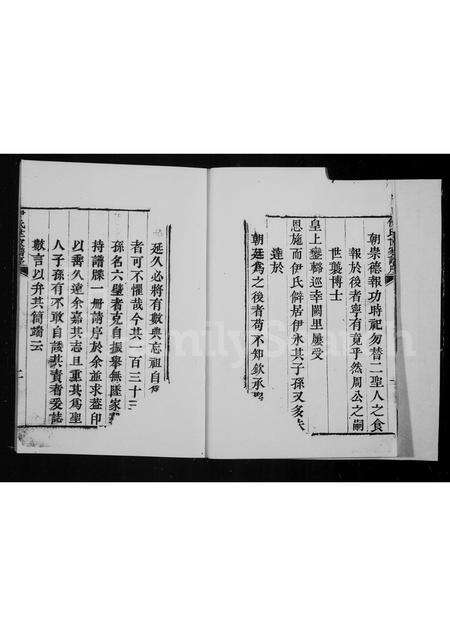 朝崇德報功時祀勿替二聖人之食
報於後者寧有竟乎然周公之嗣
世襲博士
皇上鑾輅巡幸闕里屢受
恩施而伊氏僻居伊水其子孫又多失
達於
朝廷為之後者苟不知欽承
延久必將有數典忘祖自
者可不懼哉今其一百三十
孫名六璧者克自振拏無墜家
持譜牒一冊請序於余並求蓋印
以垂久遠余嘉其志且重其為聖
人子孫有不敢自諉其責者爰誌
數言以弁其簡端云
二
FamilySearch